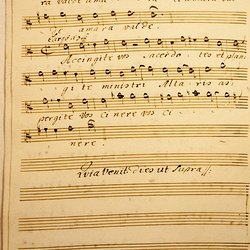 ra valde ama
amara valde.
Accingite vos Sacerdotes et plan
gite ministri Altaris as
pergite vos Cinere vos Ci
nere.
Quia Venit dies ut Supra